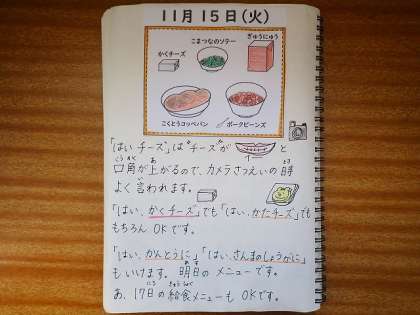 11月15日(火)
こまつなのソテー
ぎゅうにゅう
かくチーズ
こくとうコッペパン
ポークビーンズ
「はい チーズ」は"チーズ"が と
こうかく あ とき
口角が上がるので、カメラさつえいの時
よく言われます。
「はい、かくチーズ」でも「はい、かたチーズ」でも
もちろん OKです。
「はい、かんとうに」「はい、さんまのしょうがに」
もいけます。明日のメニューです。
にち きゅうしょく
あ、17日の給食メニューも OKです。